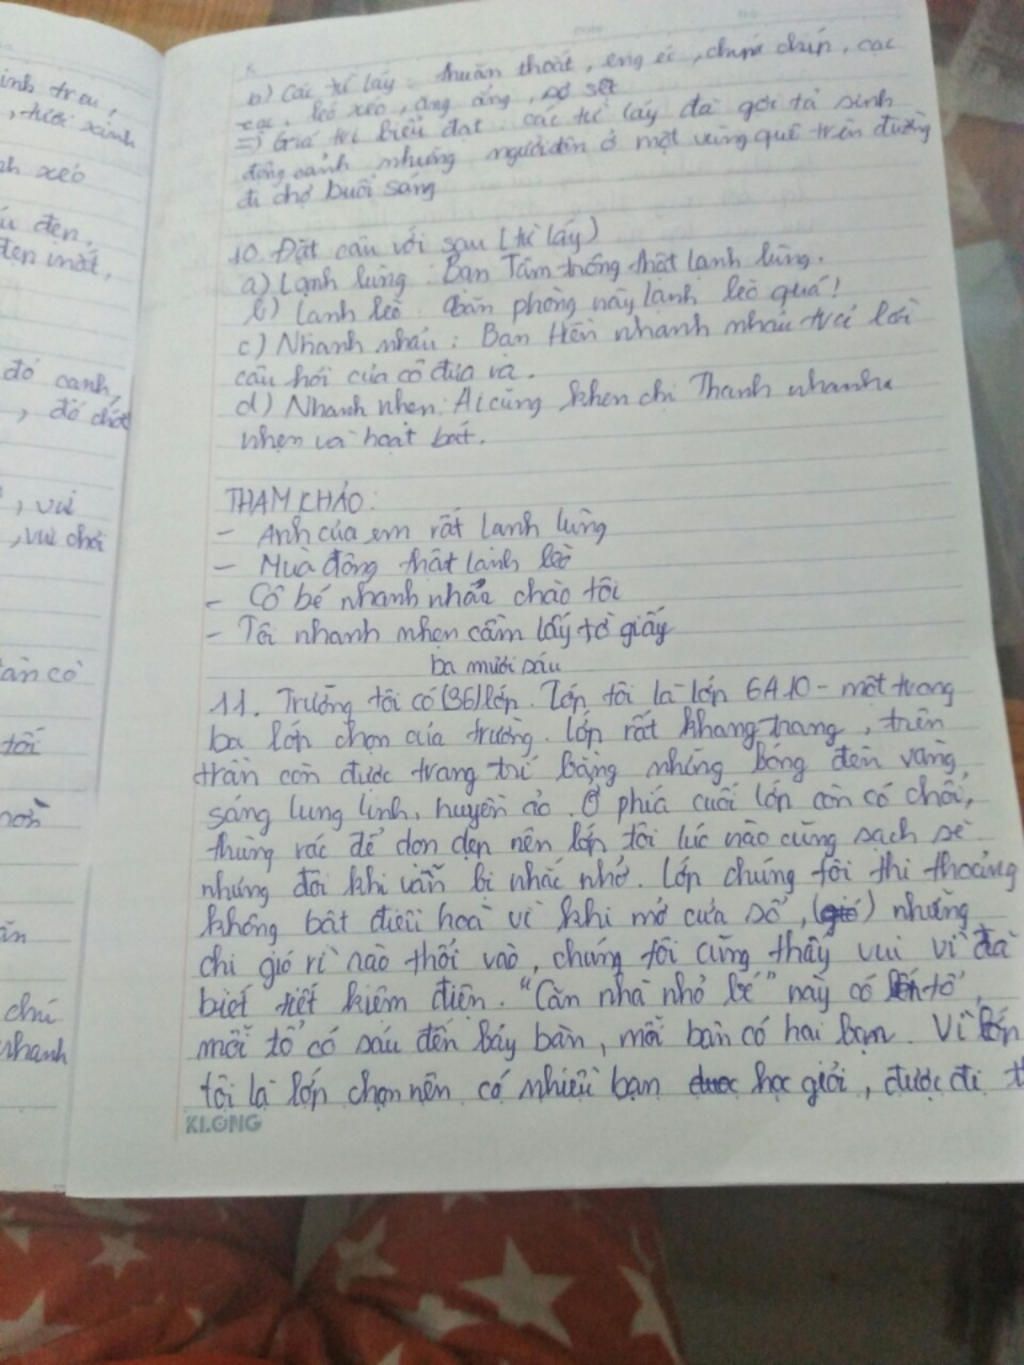 inh trou,
, tươi xinh
nh xéo
đẹn,
đẹp mắt,
đỏ oanh,
, đỏ chót
, vui
, vui chơi
àn cò
tối
chú
nhanh
b) Các từ láy: thuăn thoắt, eng éc, chíp, cạc
cạc, léo xéo, ăng ẳng,
=) Giá trị biểu đạt: các từ láy đã gợi tả sinh
động cảnh những người dân ở một vùng quê trên đường
đi chợ buổi sáng
10. Đặt câu với sau (từ láy)
a) Lạnh lùng: Bạn Tâm trông thật lạnh lùng.
b) Lạnh lẽo: Căn phòng này lạnh lẽo quá!
c) Nhanh nhảu: Bạn Hền nhanh nhảu trả lời
câu hỏi của cô đưa ra.
d) Nhanh nhẹn: Ai cũng khen chị Thanh nhanh
nhẹn và hoạt bát.
THAM KHẢO:
- Anh của em rất lạnh lùng
- Mùa đông thật lạnh lẽo
- Cô bé nhanh nhảu chào tôi
- Tôi nhanh nhẹn cầm lấy tờ giấy
ba mươi sáu
11. Trường tôi có (36) lớp. Lớp tôi là lớp 6A10 - một trong
ba lớp chọn của trường. Lớp rất khang trang, trên
trần còn được trang trí bằng những bóng đèn vàng,
sáng lung linh, huyền ảo. Ở phía cuối lớp còn có chổi,
thùng rác để dọn dẹp nên lớp tôi lúc nào cũng sạch sẽ
nhưng đôi khi vẫn bị nhắc nhở. Lớp chúng tôi thi thoảng
không bật điều hoà vì khi mở cửa sổ, (gió) những
chị gió rì rào thổi vào, chúng tôi cũng thấy vui vì đã
biết tiết kiệm điện. "Căn nhà nhỏ bé" này có tổ,
mỗi tổ có sáu đến bảy bàn, mỗi bàn có hai bạn. Vì lớp
tôi là lớp chọn nên có nhiều bạn được học giỏi, được đi t
KLONG